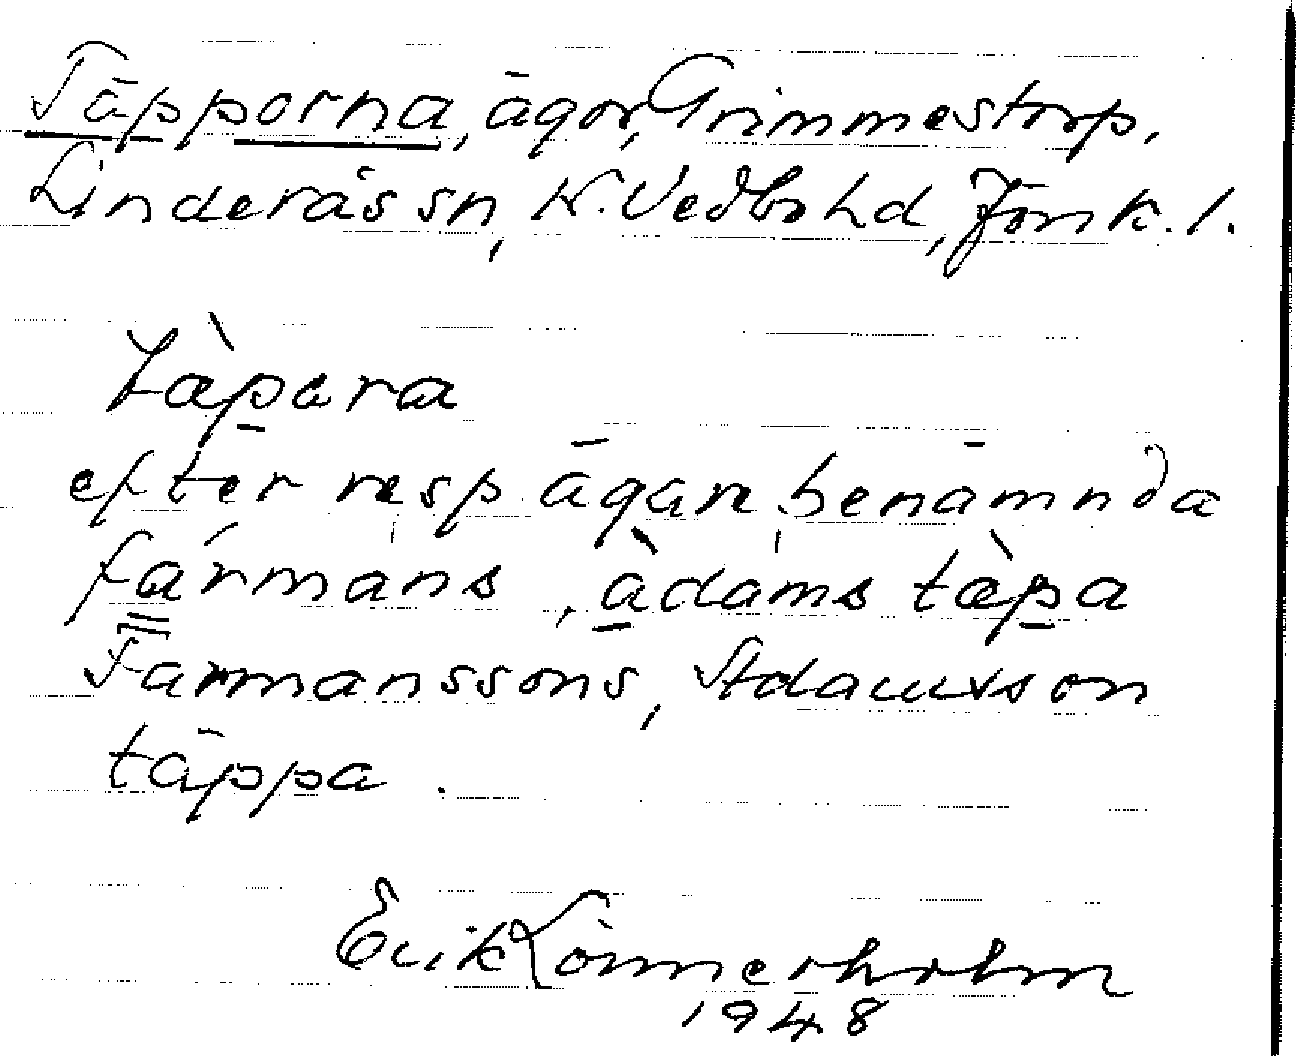 Täpporna, ägor, Grimmestorp,
Linderås sn, N. Vedbo hd, Jönk. l.
tæ̀p̲ara
efter resp ägare benämnda
fármans, àdams tæ̀p̲a
Farmanssons, Adamsson
täppa.
Erik Lönnerholm
1948